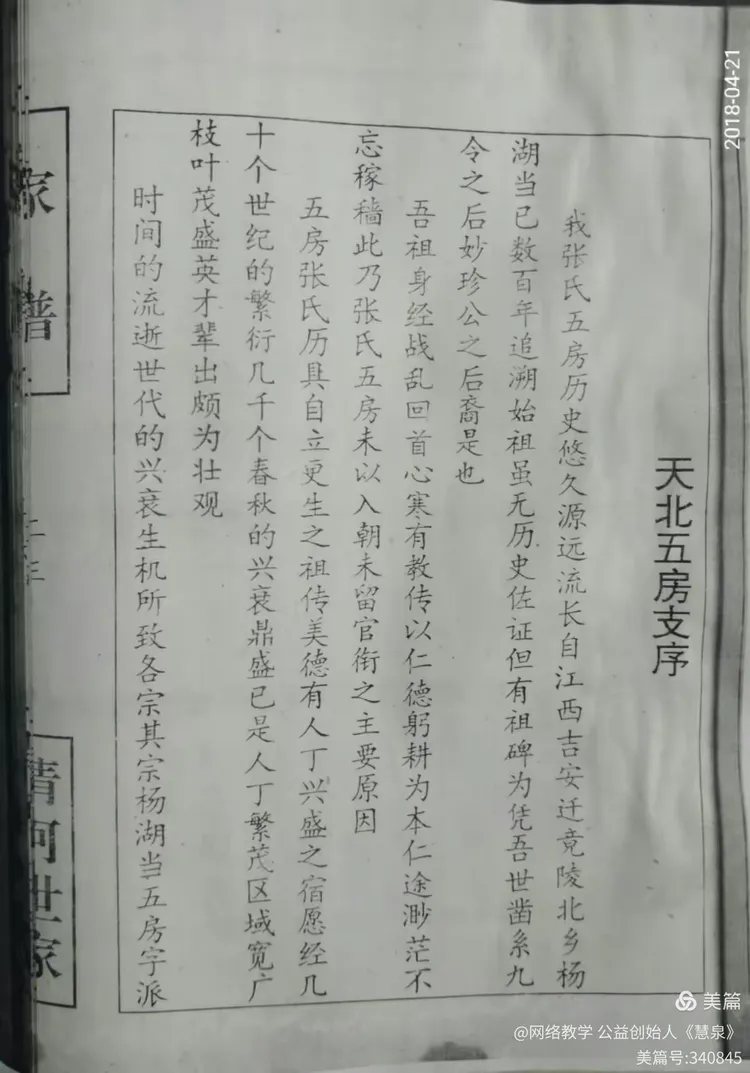 天北五房支序
我张氏五房历史悠久源远流长自江西吉安迁竟陵北乡杨
湖当已数百年追溯始祖虽无历史佐证但有祖碑为凭吾世凿系九
令之后妙珍公之后裔是也
吾祖身经战乱回首心寒有教传以仁德躬耕为本仁途渺茫不
忘稼穑此乃张氏五房未以入朝未留官衔之主要原因
五房张氏历具自立更生之祖传美德有人丁兴盛之宿愿经几
十个世纪的繁衍几千个春秋的兴衰鼎盛已是人丁繁茂区域宽广
枝叶茂盛英才辈出颇为壮观
时间的流逝世代的兴衰生机所致各宗其宗杨湖当五房字派
家谱
清河世家
2018-04-21
美篇
@网络教学 公益创始人《慧泉》
美篇号:340845